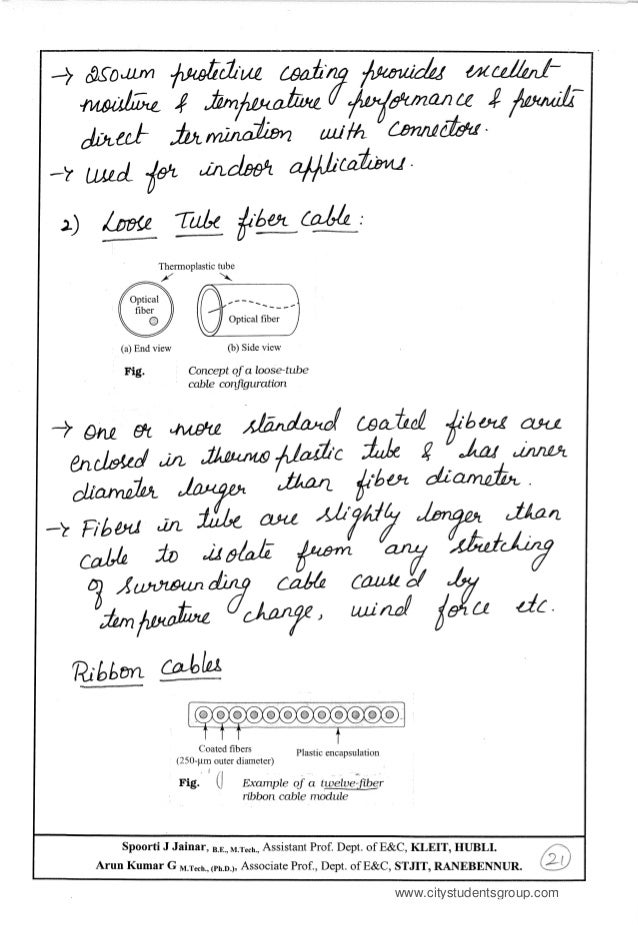 → 250um protective coating provides excellent
moisture & temperature performance & permits
direct termination with connectors.
→ used for indoor applications.
2) Loose Tube fiber cable :
Thermoplastic tube
Optical
fiber
Optical fiber
(a) End view (b) Side view
Fig. Concept of a loose-tube
cable configuration
→ One or more standard coated fibers are
enclosed in thermo plastic tube & has inner
diameter larger than fiber diameter.
→ Fibers in tube are slightly longer than
cable to isolate from any stretching
of surrounding cable caused by
temperature change, wind force etc.
Ribbon cables
Coated fibers
(250-μm outer diameter)
Plastic encapsulation
Fig. Example of a twelve-fiber
ribbon cable module
Spoorti J Jainar, B.E., M.Tech., Assistant Prof. Dept. of E&C, KLEIT, HUBLI.
Arun Kumar G M.Tech., (Ph.D.), Associate Prof., Dept. of E&C, STJIT, RANEBENNUR.
21
www.citystudentsgroup.com